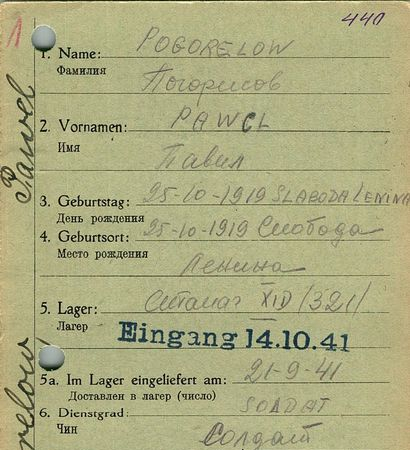 440
1. Name: POGORELOW
Фамилия Погорисов
2. Vornamen: PAWEL
Имя Павил
3. Geburtstag: 25-10-1919 SLABODA LENINA
День рождения
4. Geburtsort: 25-10-1919 Слобода
Место рождения Ленина
5. Lager: Сталаг XID /321/
Лагер
Eingang 14.10.41
5a. Im Lager eingeliefert am: 21-9-41
Доставлен в лагер (число)
6. Dienstgrad: SOLDAT
Чин Солдат
Pawel
relow